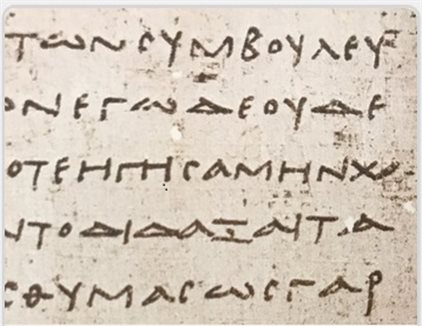 ΤΩΝϹΥΜΒΟΥΛΕΥ
ΟΝΕΓΩΔΕΟΥΔΕ
ΟΤΕΗΓΗϹΑΜΗΝΧΑ
ΝΤΟΔΙΔΑΞΑΙΤΑ
ϹΘΥΜΑϹΩϹΓΑΡ